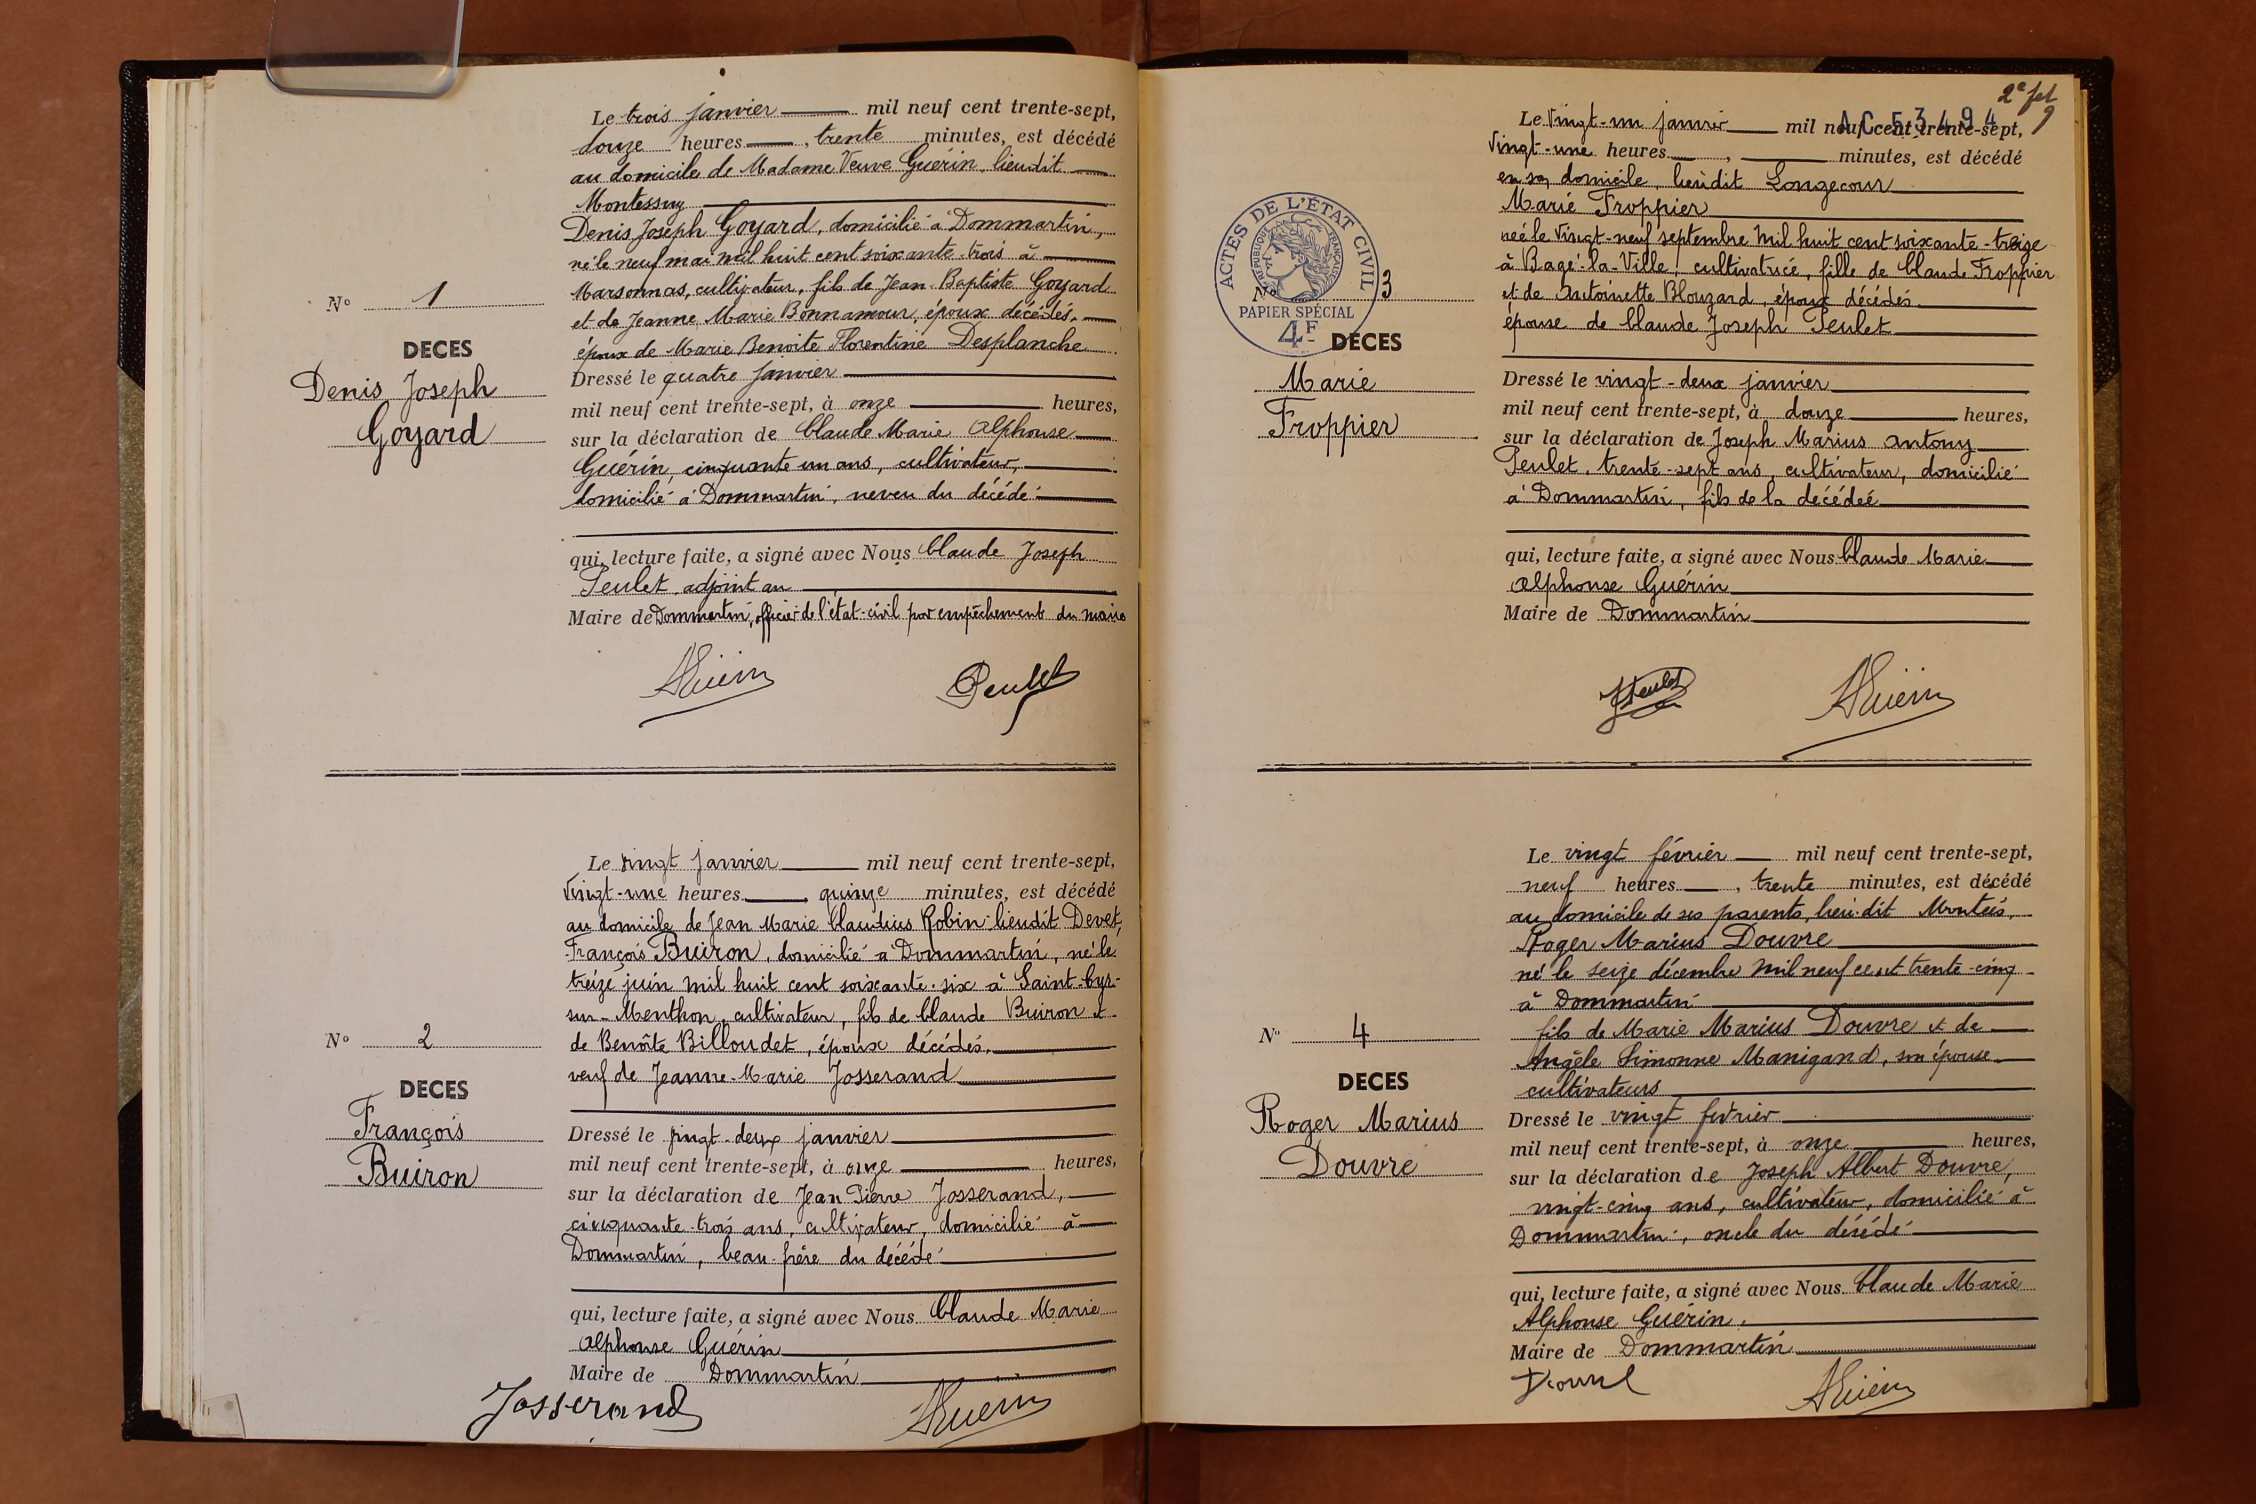 Le trois janvier mil neuf cent trente-sept,
douze heures, trente minutes, est décédé
au domicile de Madame Veuve Guérin, lieudit
Montessuy
Denis Joseph Goyard, domicilié à Dommartin,
né le neuf mai mil huit cent soixante-trois à
Marsonnas, cultivateur, fils de Jean-Baptiste Goyard
et de Jeanne Marie Bonnamour, époux décédés.
époux de Marie Benoite Florentine Desplanche
Dressé le quatre janvier
mil neuf cent trente-sept, à onze heures,
sur la déclaration de Claude Marie Alphonse
Guérin, cinquante un ans, cultivateur,
domicilié à Dommartin, neveu du décédé
qui, lecture faite, a signé avec Nous Claude Joseph
Peulet, adjoint au
Maire de Dommartin, officier de l'état-civil par empêchement du maire
N° 1
DECES
Denis Joseph
Goyard
AGuérin Peulet
Le vingt janvier mil neuf cent trente-sept,
vingt-une heures, quinze minutes, est décédé
au domicile de Jean Marie Claudius Robin lieudit Devet,
François Buiron, domicilié à Dommartin, né le
treize juin mil huit cent soixante-six à Saint-Cyr-
sur-Menthon, cultivateur, fils de Claude Buiron et
de Benoîte Billoudet, époux décédés.
veuf de Jeanne-Marie Josserand
Dressé le vingt-deux janvier
mil neuf cent trente-sept, à onze heures,
sur la déclaration de Jean Pierre Josserand,
cinquante-trois ans, cultivateur, domicilié à
Dommartin, beau-frère du décédé
qui, lecture faite, a signé avec Nous Claude Marie
Alphonse Guérin
Maire de Dommartin
N° 2
DECES
François
Buiron
Josserand AGuérin
2e fet
9
AC 53494
Le vingt-un janvier mil neuf cent trente-sept,
vingt-une heures, minutes, est décédé
en son domicile, lieudit Longecour
Marie Froppier
née le vingt-neuf septembre mil huit cent soixante-treize
à Bagé-la-Ville, cultivatrice, fille de Claude Froppier
et de Antoinette Blouzard, époux décédés.
épouse de Claude Joseph Peulet
Dressé le vingt-deux janvier
mil neuf cent trente-sept, à douze heures,
sur la déclaration de Joseph Marius Antony
Peulet, trente-sept ans, cultivateur, domicilié
à Dommartin, fils de la décédée
qui, lecture faite, a signé avec Nous Claude Marie
Alphonse Guérin
Maire de Dommartin
ACTES DE L'ÉTAT CIVIL
RÉPUBLIQUE FRANÇAISE
PAPIER SPÉCIAL
4F
N° 3
DECES
Marie
Froppier
JPeulet AGuérin
Le vingt février mil neuf cent trente-sept,
neuf heures, trente minutes, est décédé
au domicile de ses parents, lieu-dit Monteis,
Roger Marius Douvre
né le seize décembre mil neuf cent trente-cinq
à Dommartin
fils de Marie Marius Douvre et de
Angèle Simonne Manigand, son épouse
cultivateurs
Dressé le vingt février
mil neuf cent trente-sept, à onze heures,
sur la déclaration de Joseph Albert Douvre,
vingt-cinq ans, cultivateur, domicilié à
Dommartin, oncle du décédé
qui, lecture faite, a signé avec Nous Claude Marie
Alphonse Guérin.
Maire de Dommartin
N° 4
DECES
Roger Marius
Douvre
Douvre AGuérin